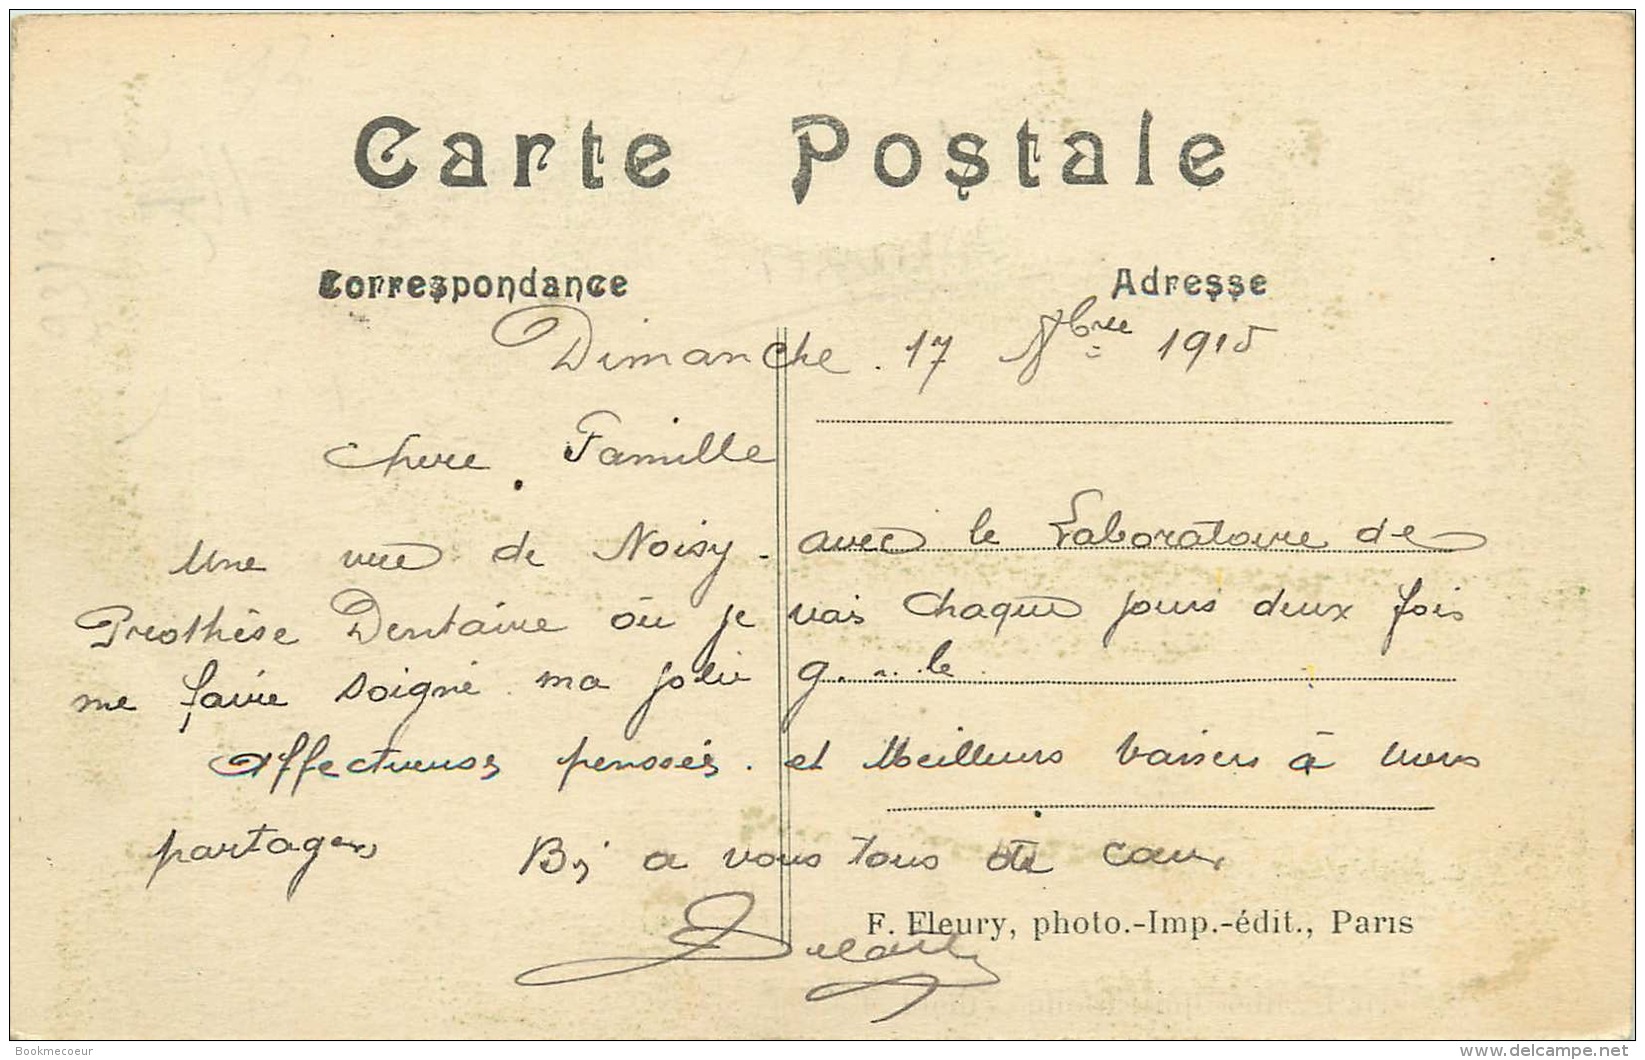 Carte Postale
Correspondance Adresse
Dimanche . 17 9bre 1915
Chere Famille
Une vue de Noisy . avec le Laboratoire de
Prothèse Dentaire où je vais chaque jours deux fois
me faire soigné ma jolie g. .. le .
Affectueuses pensées . et Meilleurs baisers à
partager à vous tous de cœur
F. Fleury, photo.-Imp.-édit., Paris
Bookmecoeur
delcampe.net